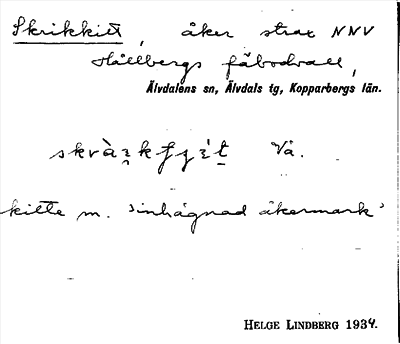 Skrikkitt, åker strax NNV
Hållbergs fäbodvall,
Älvdalens sn, Älvdals tg, Kopparbergs län.
Vå.
kitte m. 'inhägnad åkermark'
HELGE LINDBERG 1934.